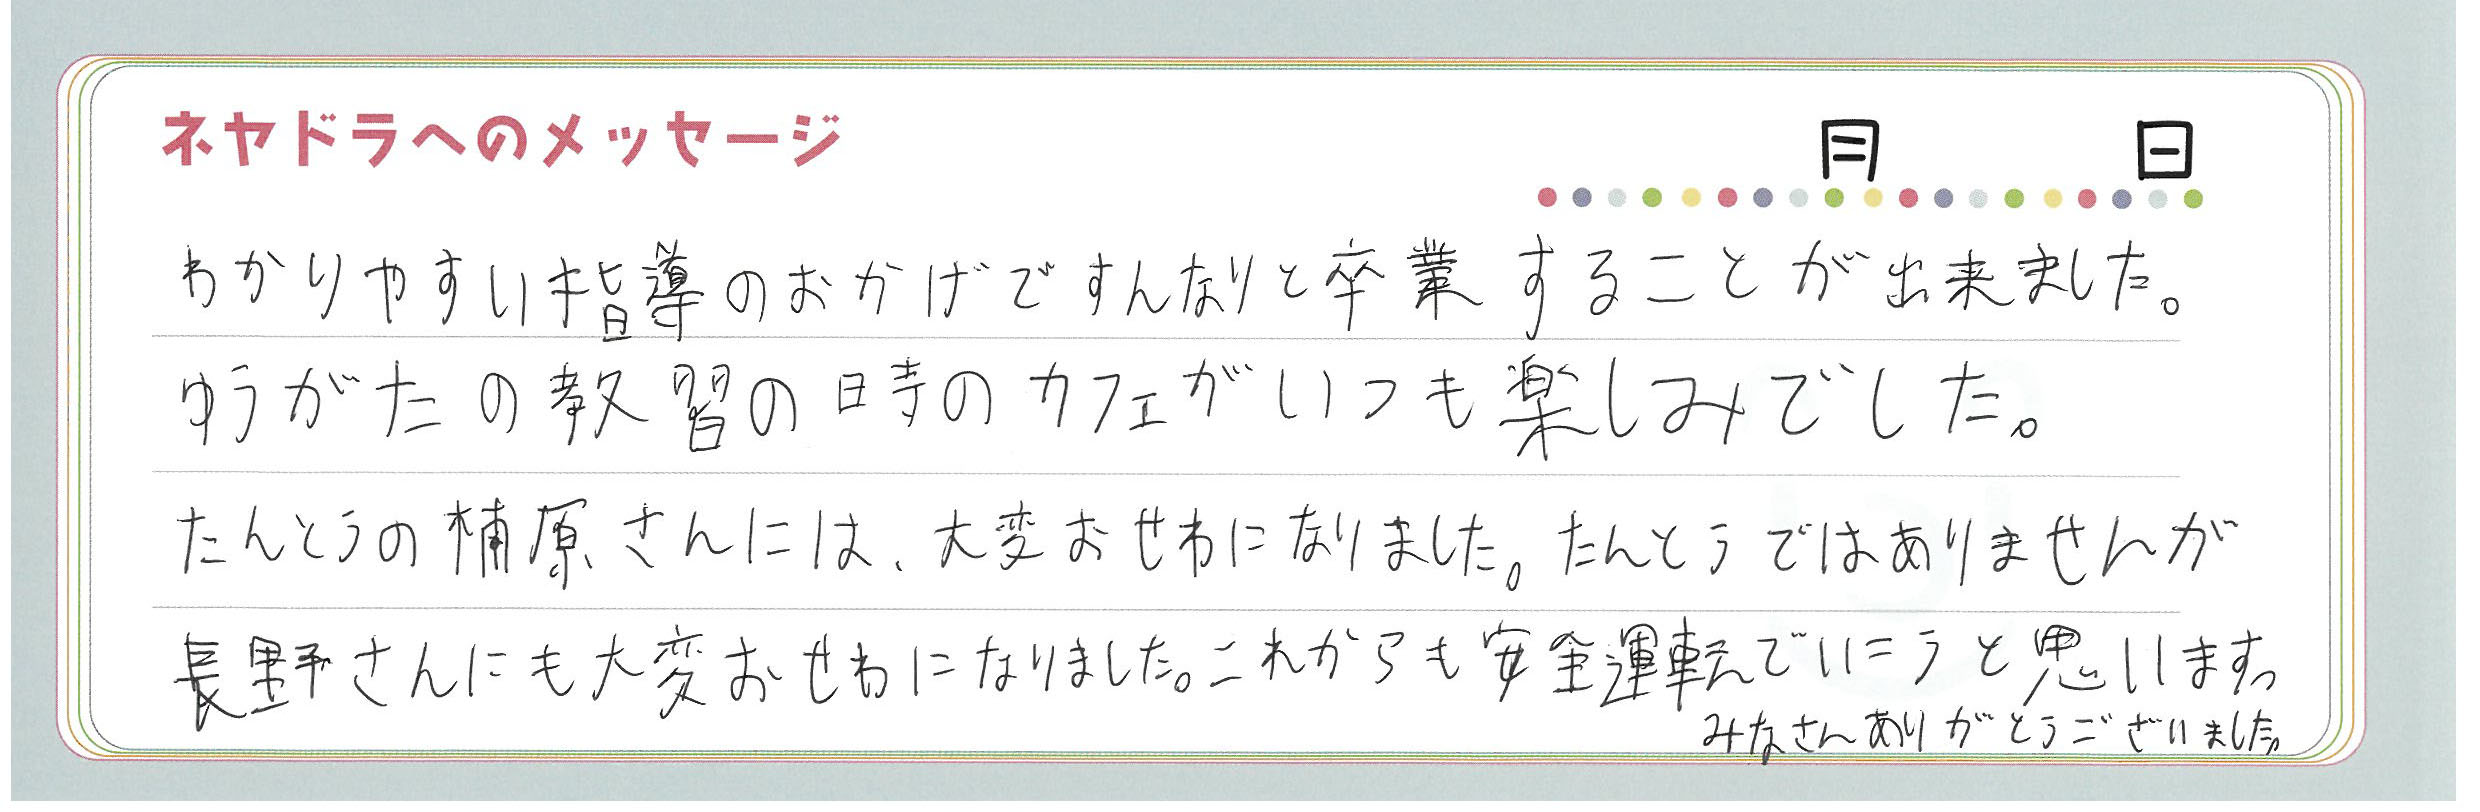 ネヤドラへのメッセージ
月 日
わかりやすい指導のおかげですんなりと卒業することが出来ました。
ゆうがたの教習の日時のカフェがいつも楽しみでした。
たんとうの楠原さんには、大変おせわになりました。たんとうではありませんが
長野さんにも大変おせわになりました。これからも安全運転でいこうと思います。
みなさんありがとうございました。